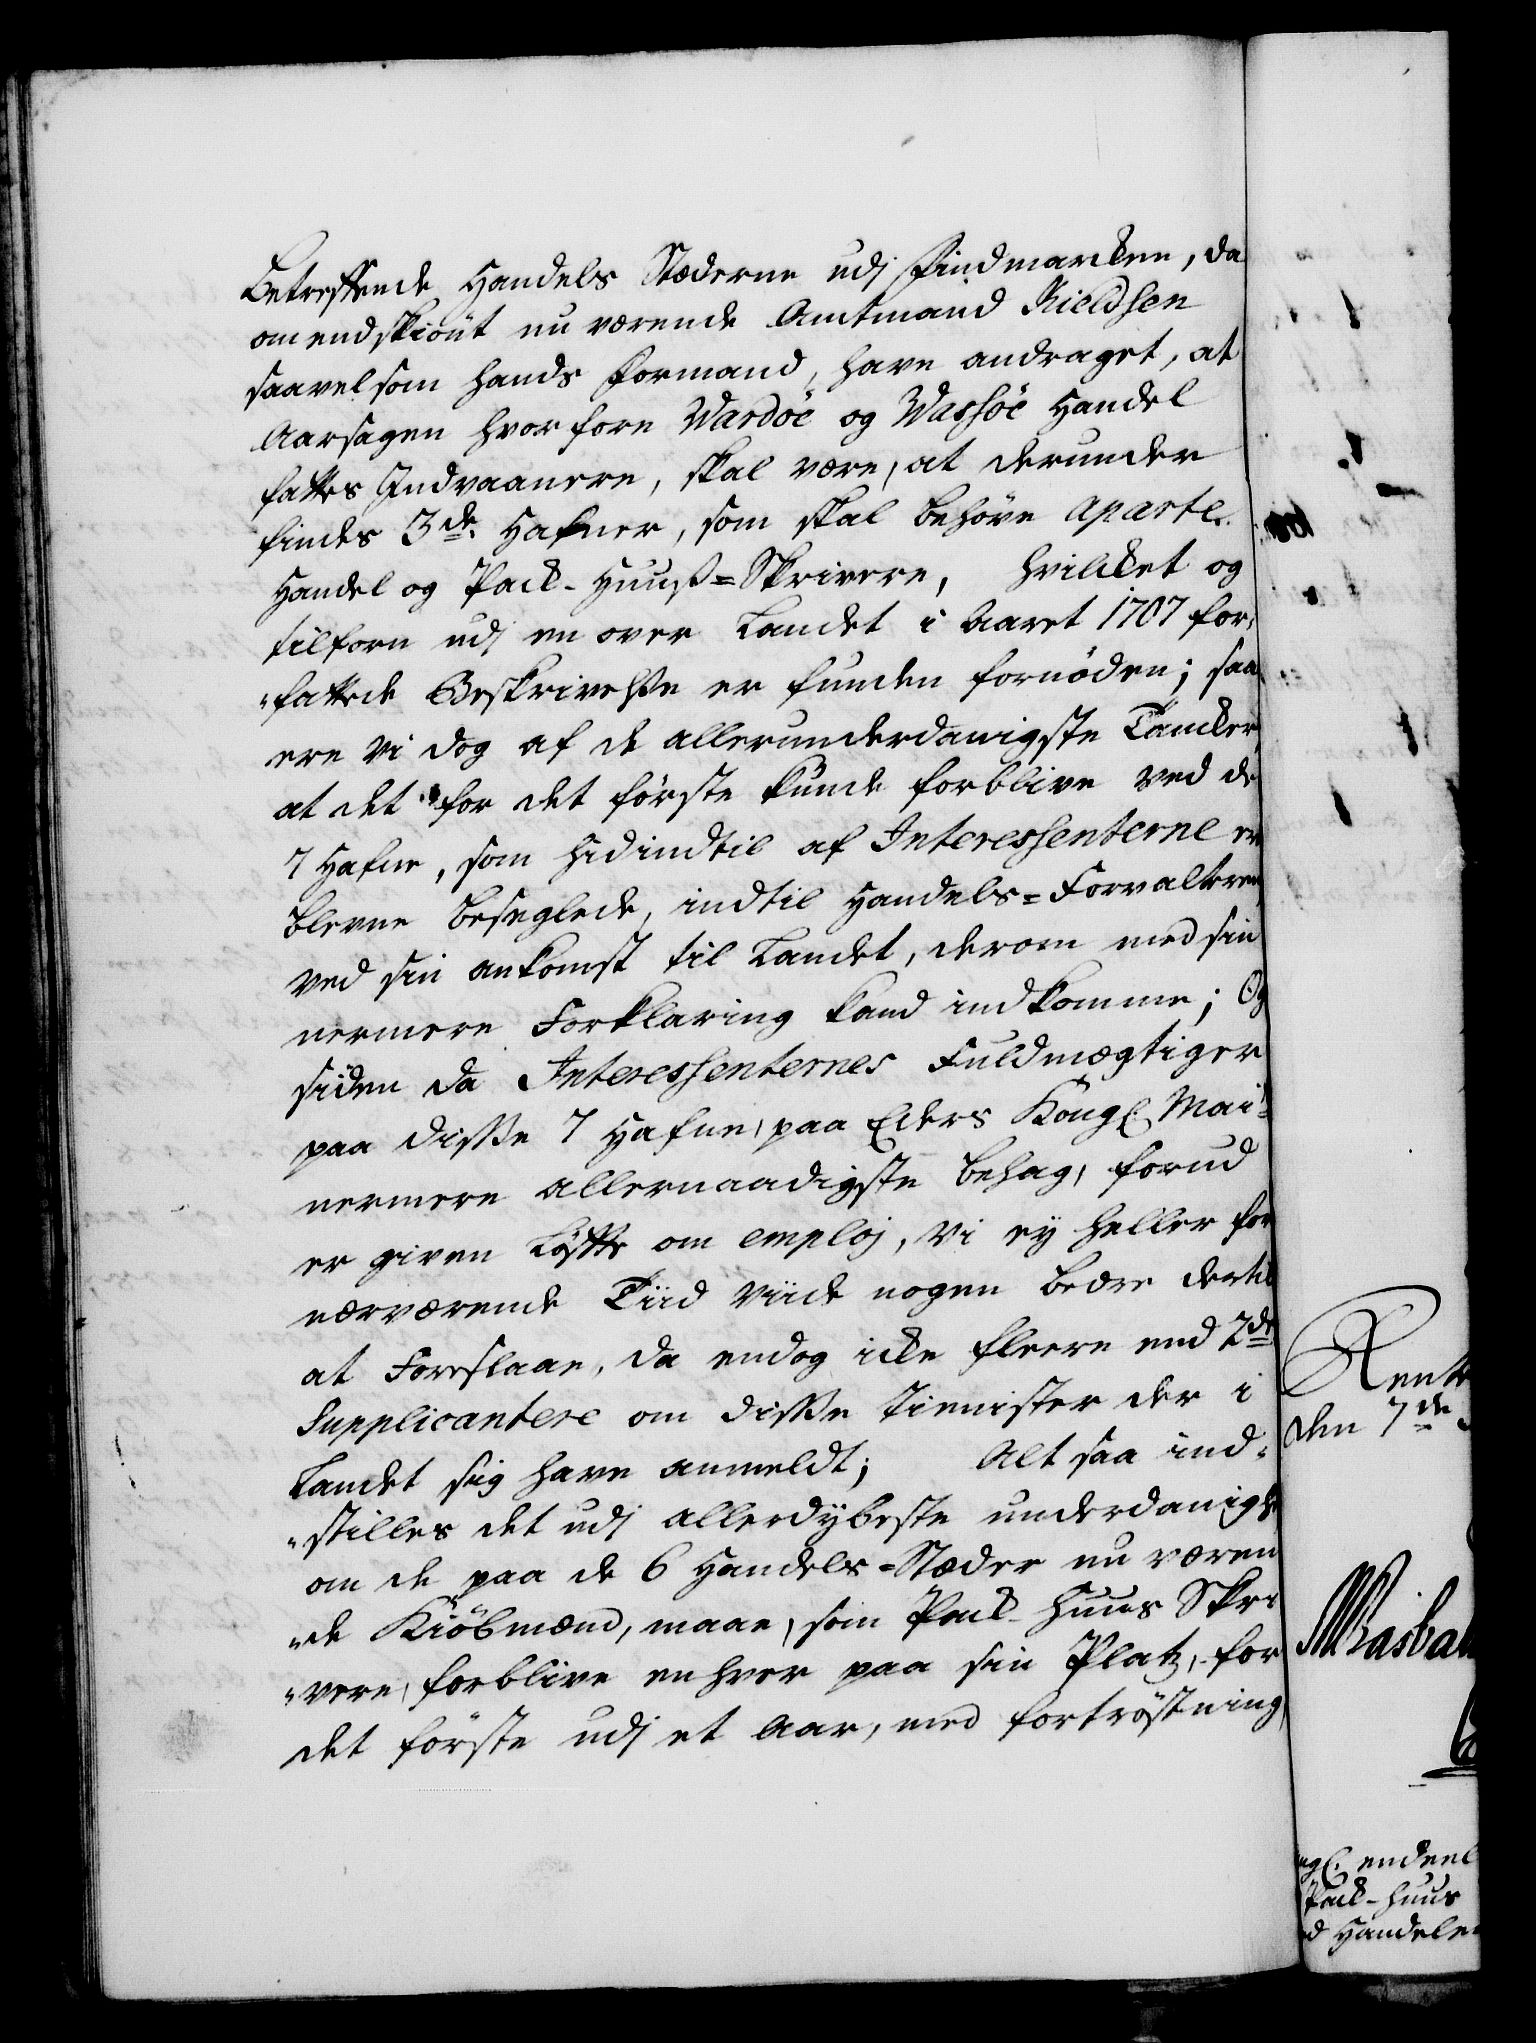 Betreffende Handels Stæderne udj Findmarcken, da
omendskiönt nu værende Amtmand Kieldsen
saavelsom hands Formand, have andraget, at
Aarsagen hvorfore Wardöe og Wassöe Handel
fattes Indvaanere, skal være, at derunder
findes 3de Hafner, som skal behöve aparte
Handel og Pack-Huuß-Skrivere, hvilcket og
tilforn udj en over Landet i Aaret 1707 for-
"fattede Beskrivelße er funden fornöden; saa
ere vi dog af de allerunderdanigste Tancker,
at det for det förste kunde forblive ved de
7 Hafne, som hidindtil af Interessenterne er
blevne beseglede, indtil Handels-Forvalteren
ved sin ankomst til Landet, derom med sin
nermere Forklaring kand indkomme; Og
siden da Interessenternes Fuldmægtiger
paa disse 7 Hafne, paa Eders Kongl Mai:
nermere allernaadigste behag, forud
er given Löffte om employ, vi ey heller for
nærværende Tiid viide nogen bedre dertil
at Foreslaae, da endog icke fleere end 2de
Supplicantere om disse tienister der i
Landet sig have anmeldt; Alt saa ind-
"stilles det udj allerdybeste underdanighed
om de paa de 6 Handels-Stæder nu væren
"de Kiöbmænd, maae, som Pack-Huus Skri
"vere, forblive enhver paa sin Platz, for
det förste udj et Aar, med fortröstning
Rente
den 7de
ngl. endeel
Pack-Huus
d Handelen